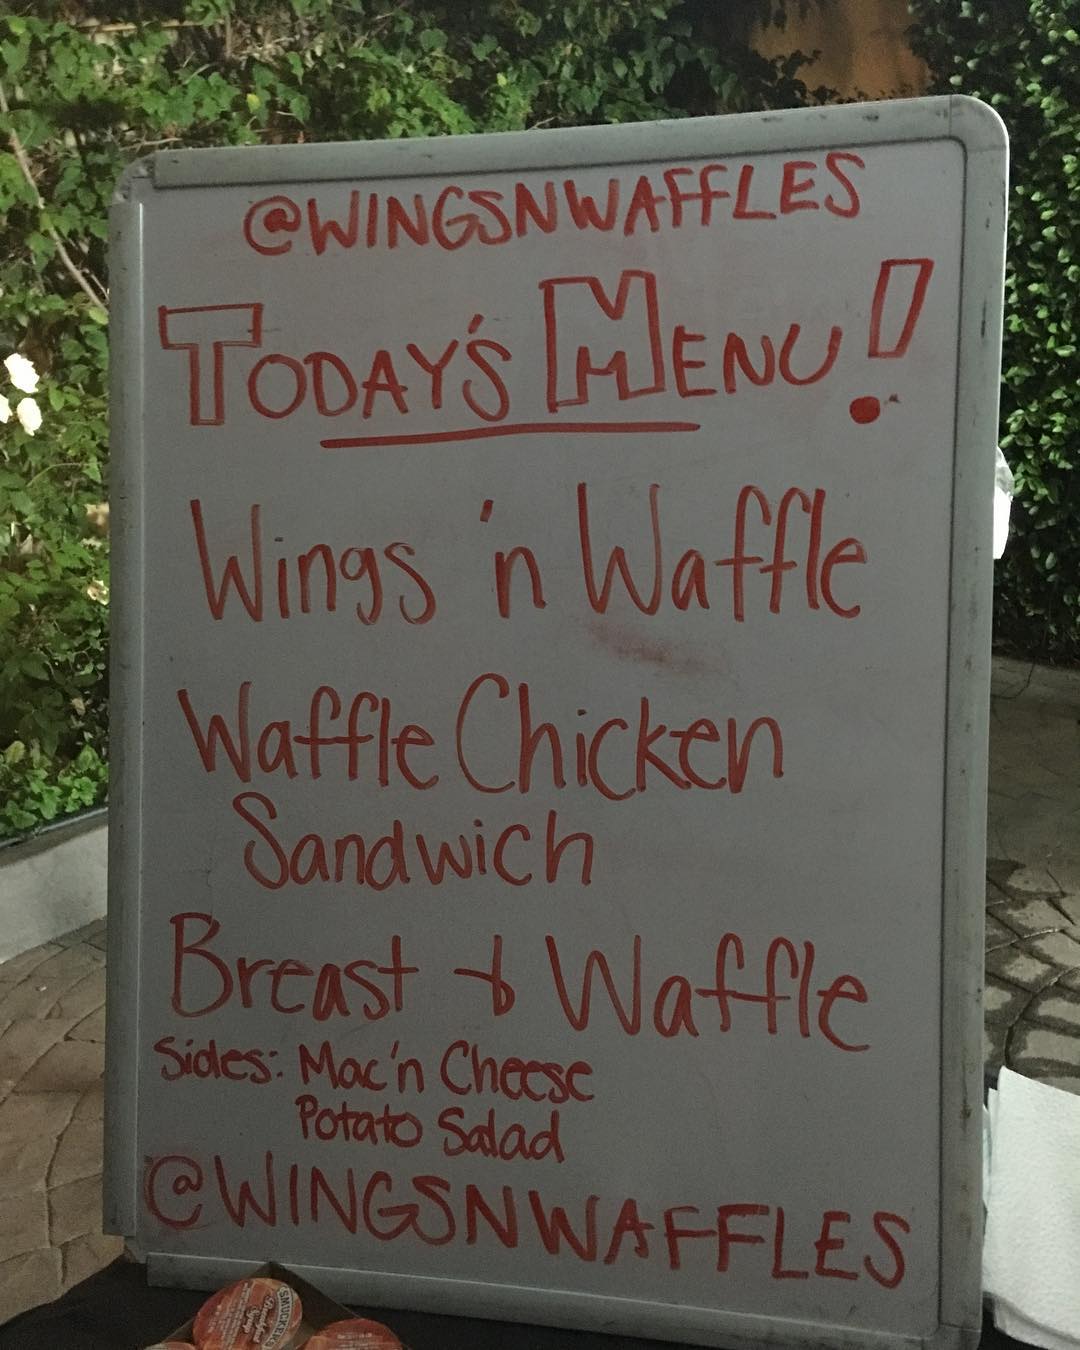 @WINGSNWAFFLES
TODAY'S MENU!
Wings 'n Waffle
Waffle Chicken
Sandwich
Breast & Waffle
Sides: Mac'n Cheese
Potato Salad
@WINGSNWAFFLES
SMUCKER'S
Breakfast
Syrup